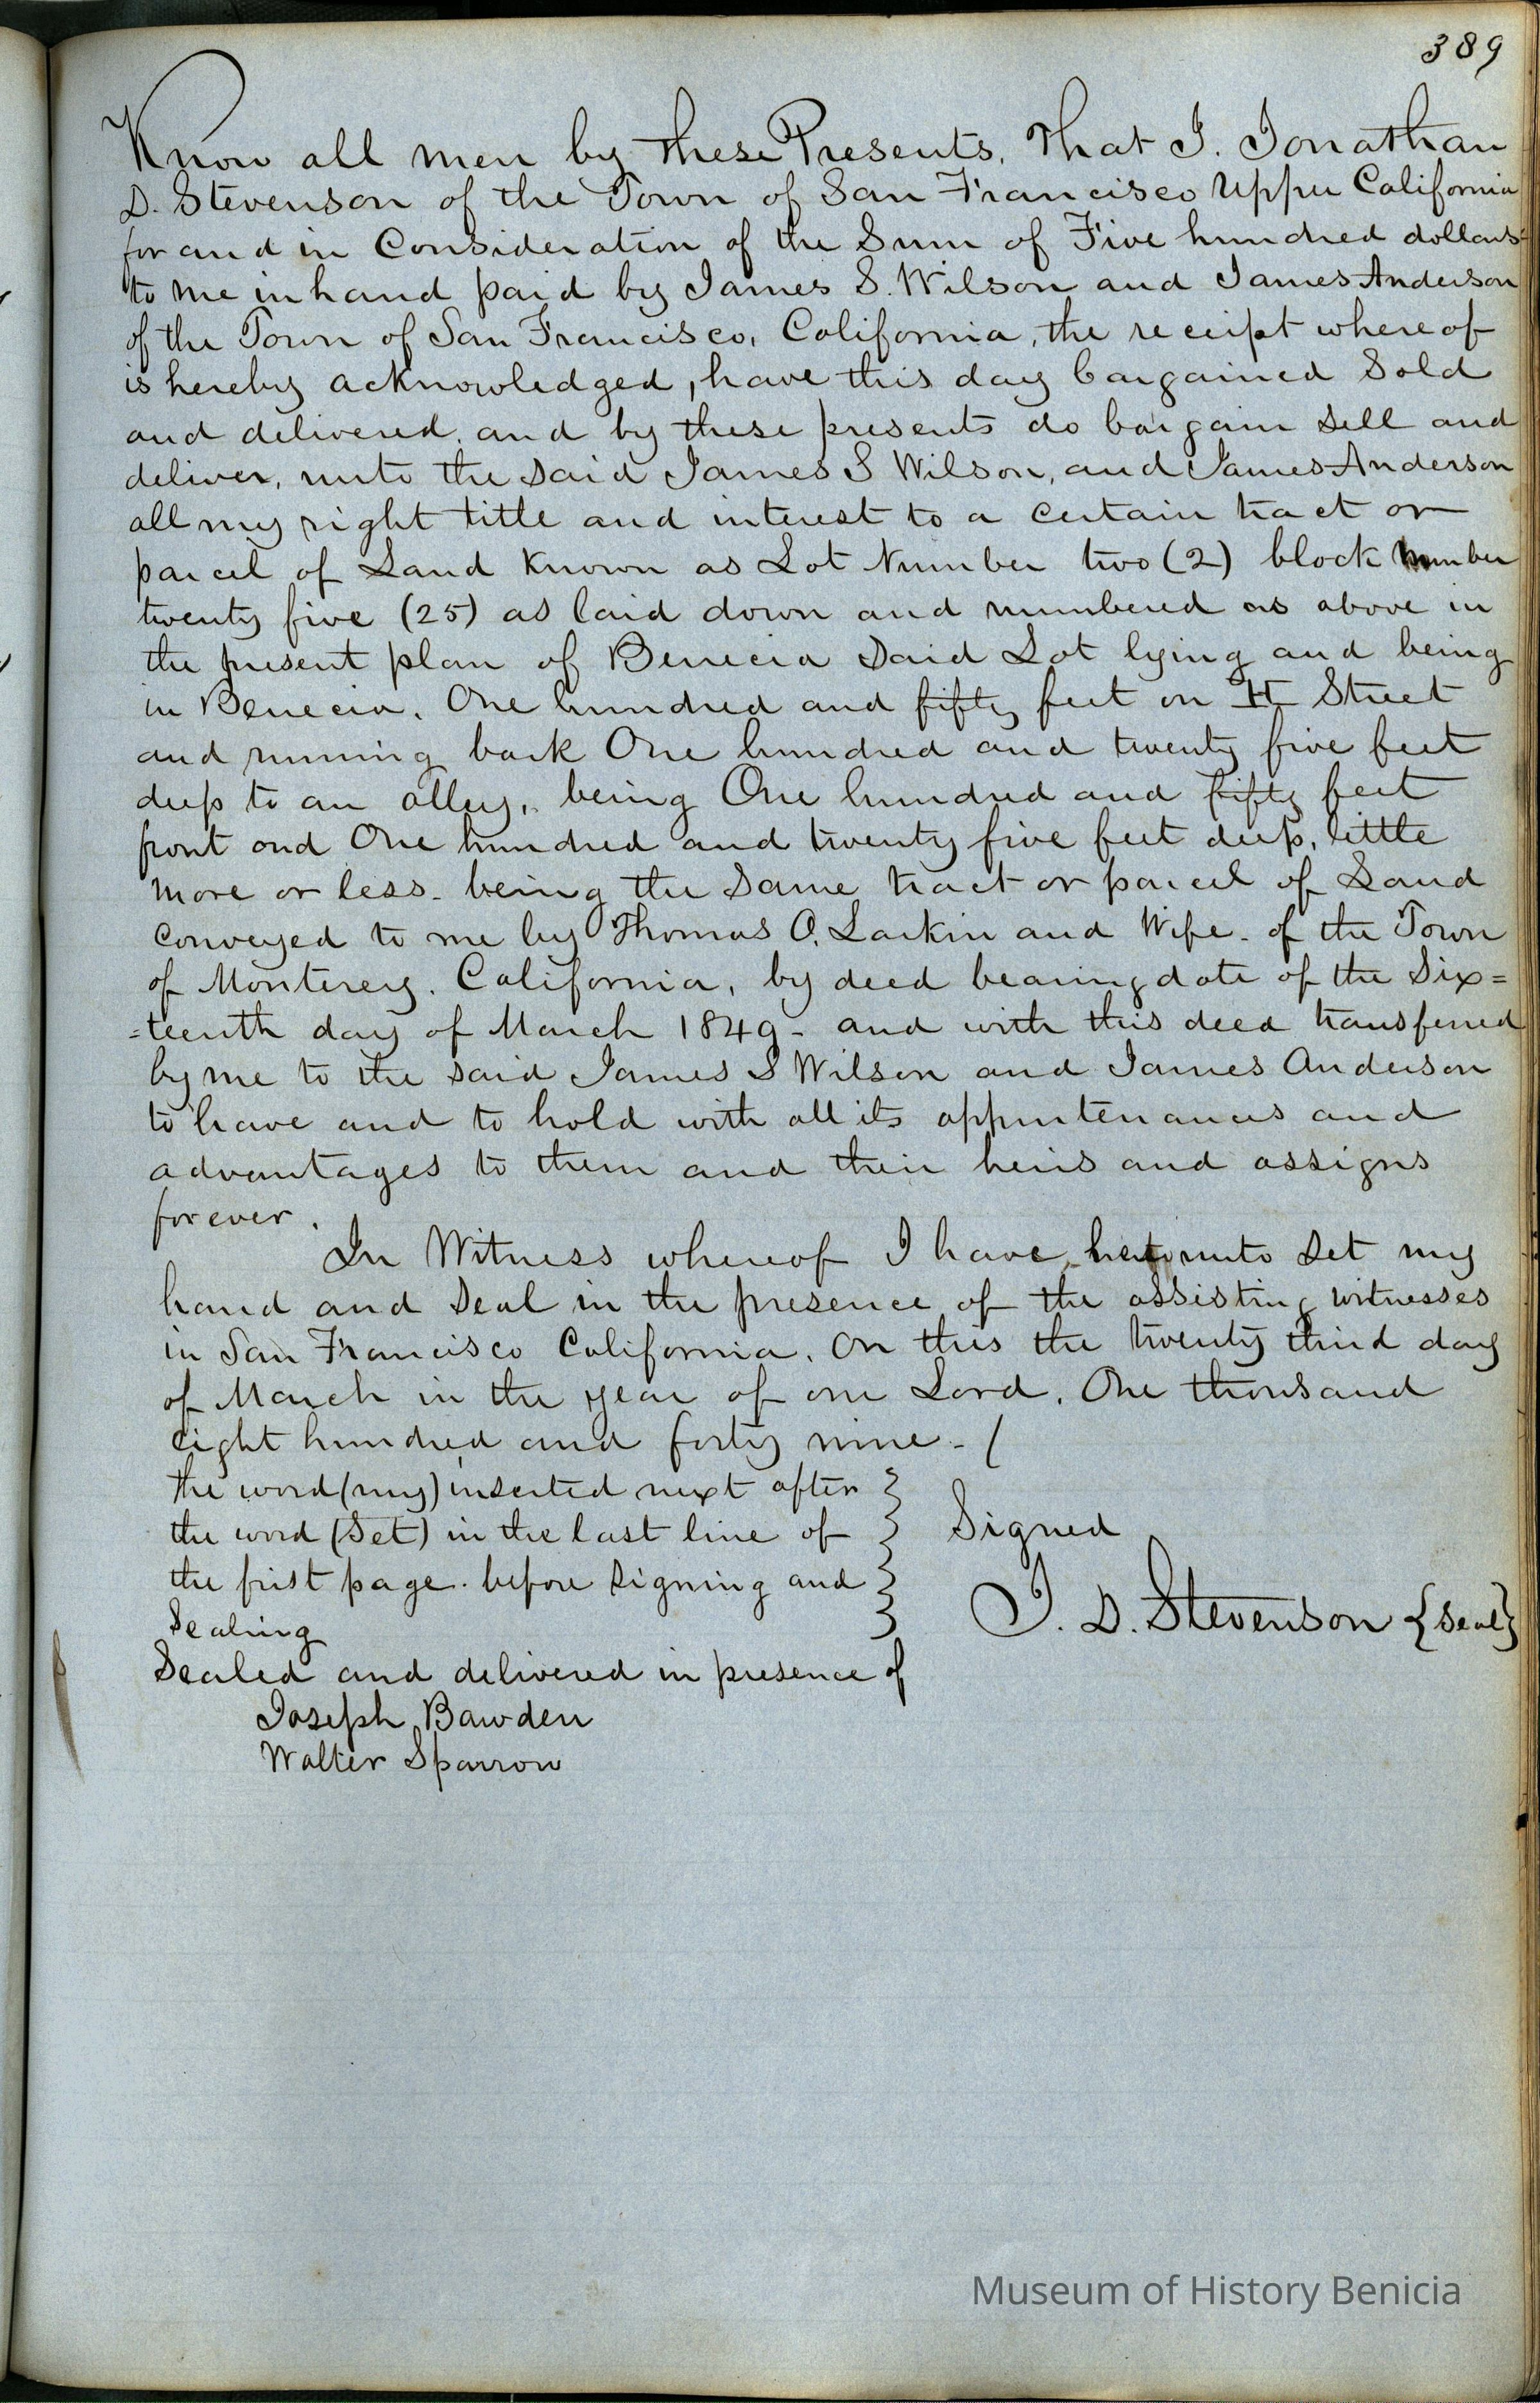 389
Know all men by these Presents, That I. Jonathan
D. Stevenson of the Town of San Francisco Upper California
for and in Consideration of the Sum of Five hundred dollars
to me in hand paid by James S. Wilson and James Anderson
of the Town of San Francisco, California, the receipt whereof
is hereby acknowledged, have this day bargained Sold
and delivered, and by these presents do bargain Sell and
deliver, unto the Said James S Wilson, and James Anderson
all my right title and interest to a certain tract or
parcel of Land Known as Lot Number two (2) block number
twenty five (25) as laid down and numbered as above in
the present plan of Benecia Said Lot lying and being
in Benecia, One hundred and fifty feet on H Street
and running back One hundred and twenty five feet
deep to an alley, being One hundred and fifty feet
front and One hundred and twenty five feet deep, little
more or less. being the Same tract or parcel of Land
conveyed to me by Thomas O. Larkin and Wife - of the Town
of Monterey. California, by deed bearing date of the Six=
=teenth day of March 1849 - and with this deed transferred
by me to the said James S Wilson and James Anderson
to have and to hold with all its appurtenances and
advantages to them and their heirs and assigns
forever.
In Witness whereof I have hereunto Set my
hand and Seal in the presence of the assisting witnesses
in San Francisco California, on this the twenty third day
of March in the year of our Lord, One thousand
eight hundred and forty nine - /
the word (my) inserted next after
the word (Set) in the last line of
the first page. before Signing and
Sealing
Signed
J. D. Stevenson {Seal}
Sealed and delivered in presence of
Joseph Bawden
Walter Sparrow
Museum of History Benicia